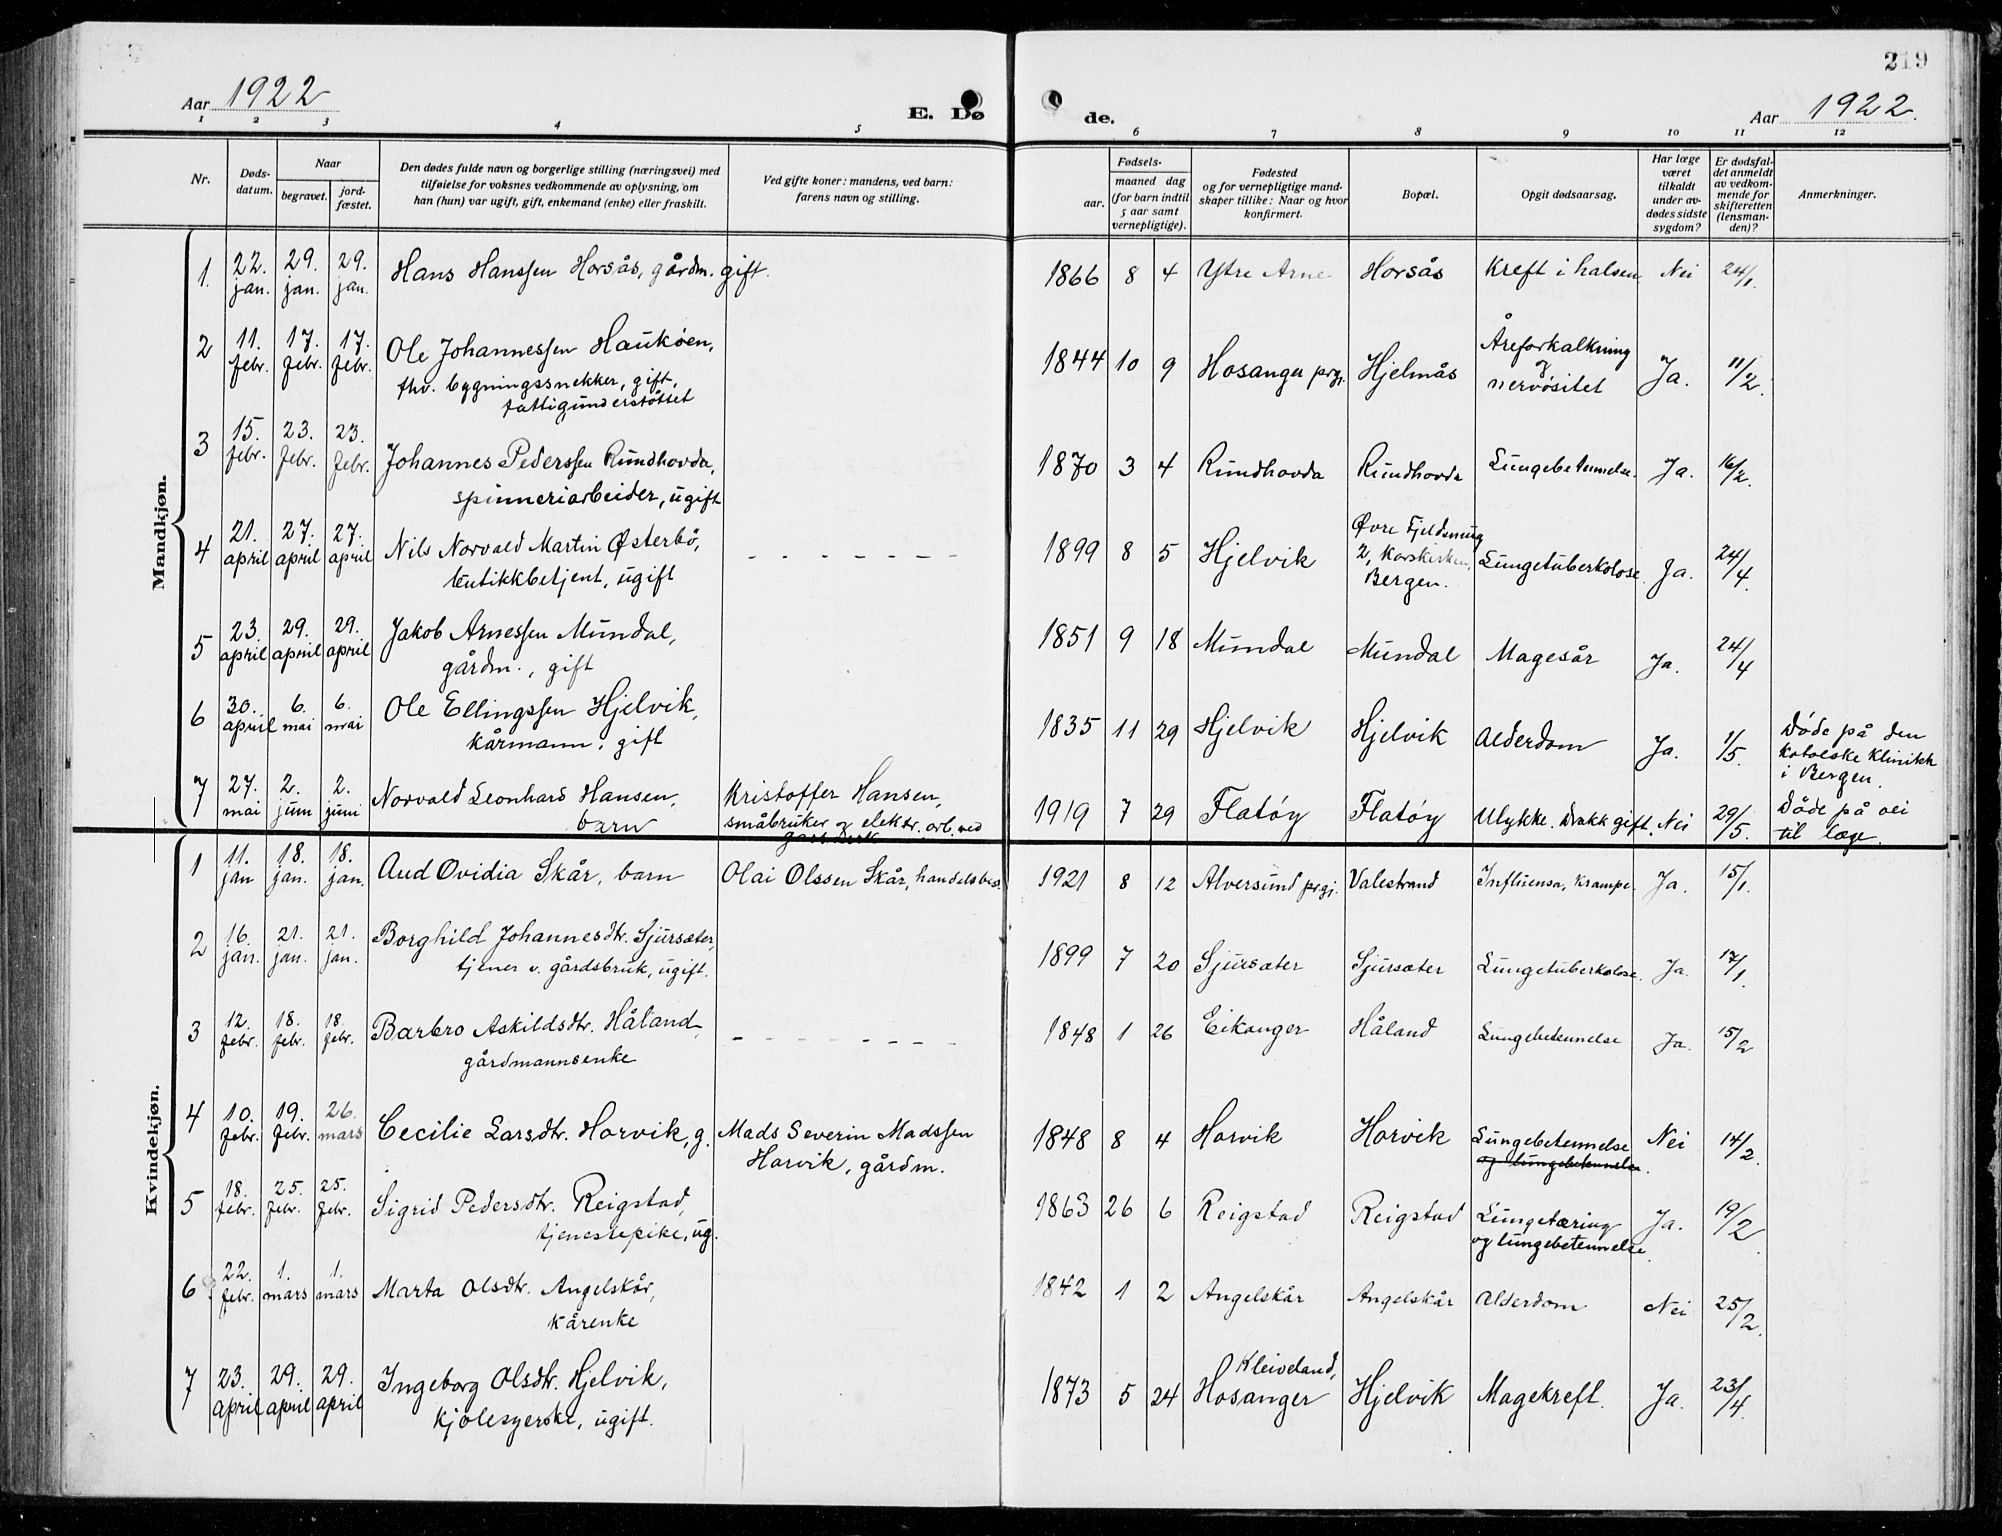 219
Aar 1922
E. Dø
de.
Aar 1922.
1 2 3 4 5 6 7 8 9 10 11 12
Nr.
Døds-
datum.
Naar
begravet.
jord-
fæstet.
Den dødes fulde navn og borgerlige stilling (næringsvei) med
tilføielse for voksnes vedkommende av oplysning, om
han (hun) var ugift, gift, enkemand (enke) eller fraskilt.
Ved gifte koner: mandens, ved barn:
farens navn og stilling.
Fødsels-
aar.
maaned dag
(for barn indtil
5 aar samt
vernepligtige).
Fødested
og for vernepligtige mand-
skaper tillike: Naar og hvor
konfirmert.
Bopæl.
Opgit dødsaarsag.
Har læge
været
tilkaldt
under av-
dødes sidste
sygdom?
Er dødsfal-
det anmeldt
av vedkom-
mende for
skifteretten
(lensman-
den)?
Anmerkninger.
Mandkjøn.
1. 22. jan. 29. jan. 29. jan. Hans Hanssen Horsås, gårdm. gift. 1866 8 4 Ytre Arne Horsås Kreft i halsen Nei 24/1.
2 11. febr. 17. febr. 17. febr. Ole Johannessen Haukøen,
fhv. bygningssnekker, gift,
fattigunderstøttet
1844 10 9 Hosanger prgj. Hjelmås Åreforkalkning
og
nervøsitet
Ja. 11/2.
3 15. febr. 23. febr. 23. febr. Johannes Pederssen Rundhovda,
spinneriarbeider, ugift
1870 3 4 Rundhovda Rundhovda Lungebetennelse. Ja. 16/2.
4 21. april 27. april 27. april Nils Norvald Martin Østerbö,
butikkbetjent, ugift
- - - - - - - -
1899 8 5 Hjelvik
Øvre Fjeldsmug
2, Korskirken,
Bergen.
Lungetuberkolose. Ja. 24/4
5 23. april 29. april 29. april Jakob Arnessen Mundal,
gårdm., gift
1851 9 18 Mundal Mundal Magesår Ja. 24/4
6 30. april 6. mai 6. mai Ole Ellingssen Hjelvik,
kårmann, gift
1835 11 29 Hjelvik Hjelvik Alderdom Ja. 1/5.
Døde på den
katolske klinikk
i Bergen.
7 27. mai 2. juni 2. juni Norvald Leonhard Hansen,
barn
Kristoffer Hansen,
småbruker og elektr. arb. ved
1919 7 29 Flatøy Flatøy Ulykke. Drakk gift. Nei 29/5.
Døde på vei
til læge.
Kvindekjøn.
1 11. jan 18. jan. 18. jan. Aud Ovidia Skår, barn Olai Olssen Skår, handelsbes. 1921 8 12 Alversund prgj. Valestrand Influensa, krampe. Ja. 15/1.
2 16. jan. 21. jan. 21. jan. Borghild Johannesdtr. Sjursæter,
tjener v. gårdsbruk, ugift.
1899 7 20 Sjursæter Sjursæter Lungetuberkolose. Ja. 17/1.
3 12. febr. 18. febr. 18. febr. Barbro Askildsdtr. Håland,
gårdmannsenke
- - - - - - - -
1848 1 26 Eikanger Håland Lungebetennelse Ja. 15/2
4 10. febr. 19. febr. 26. mars Cecilie Larsdtr. Horvik, g. Mads Severin Madssen
Horvik, gårdm.
1848 8 4 Horvik Horvik Lungebetennelse
og lungebetennelse.
Nei 14/2.
5 18. febr. 25. febr. 25. febr. Sigrid Pedersdtr. Reigstad,
tjenestepike, ug.
1863 26 6 Reigstad Reigstad Lungetæring
og lungebetennelse.
Ja. 19/2.
6 22. febr. 1. mars 1. mars Marta Olsdtr. Angelskår,
kårenke
1842 1 2 Angelskår Angelskår Alderdom Nei 25/2.
7 23. april 29. april 29. april Ingeborg Olsdtr. Hjelvik,
kjolesyerske, ugift.
1873 5 24 Kleiveland,
Hosanger Hjelvik Magekreft. Ja. 23/4.